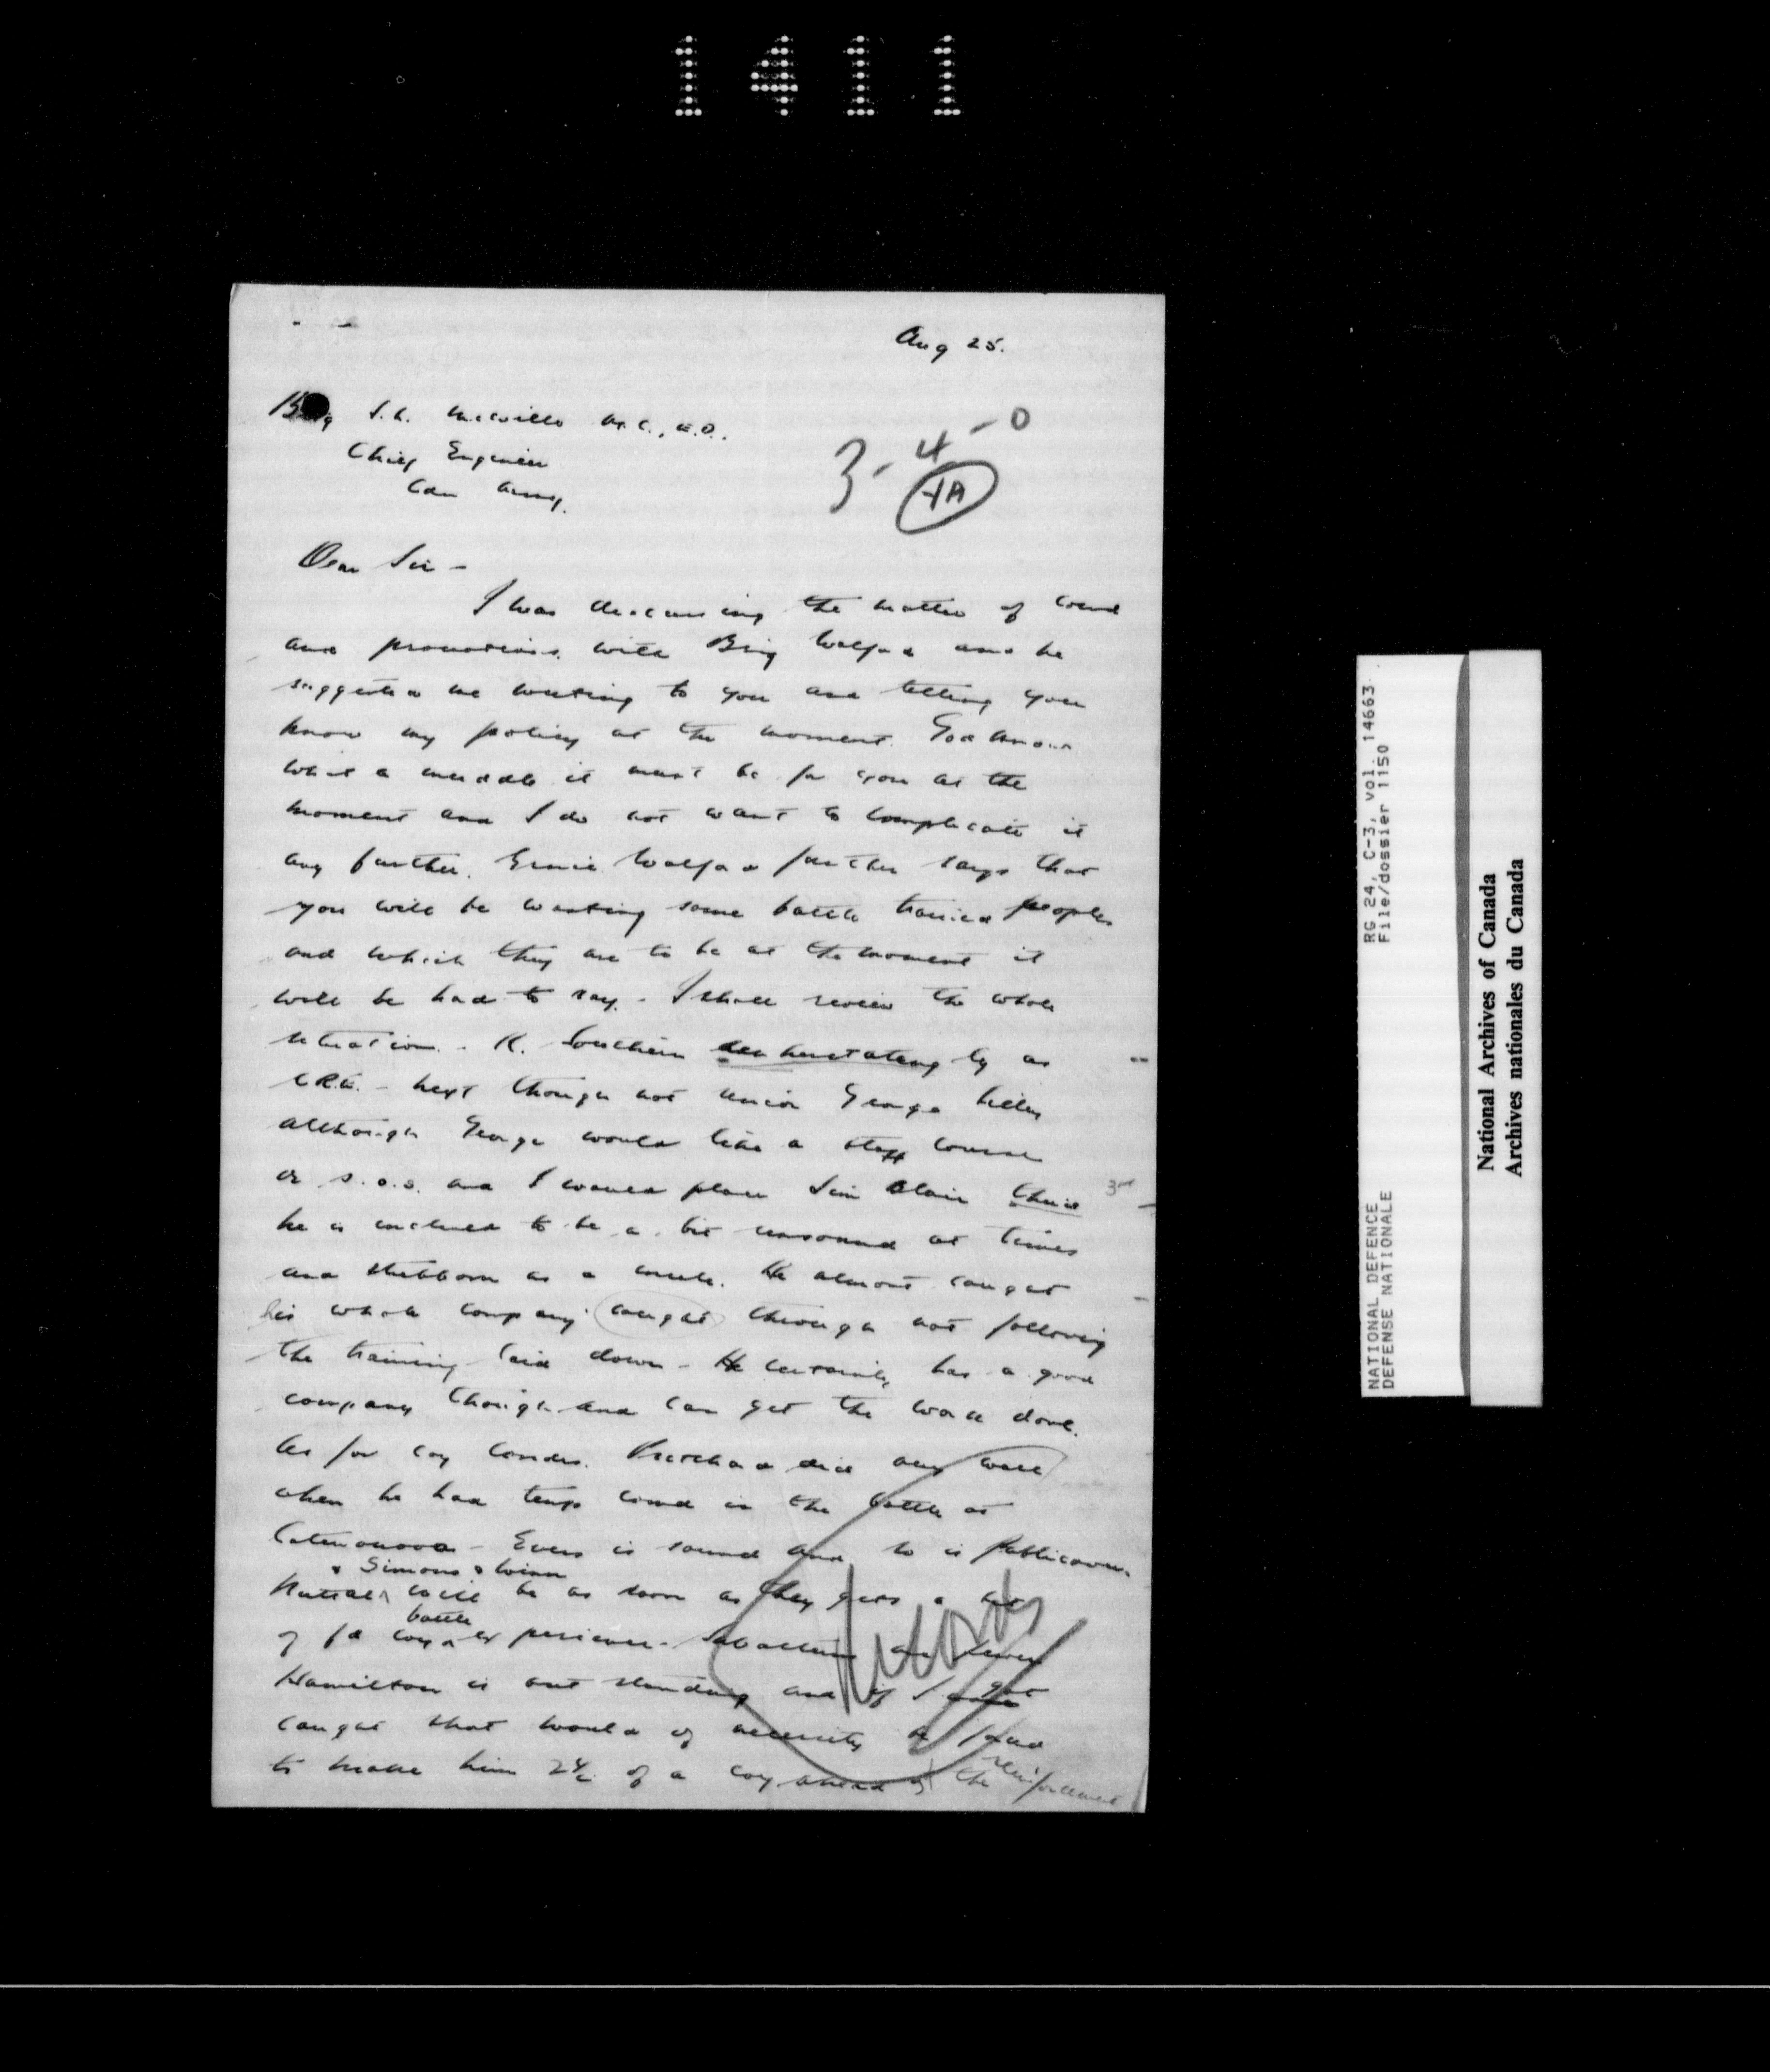 1411
Aug 25.
Brig J.L. Melville M.C., E.D.
Chief Engineer
Cdn Army.
3-4-0
1A
Dear Sir -
I was discussing the matter of comd
and promotions with Brig Walford and he
suggested me writing to you and letting you
know my policy at the moment. God knows
what a muddle it must be for you at the
moment and I do not want to complicate it
any further. Ernie Walford further says that
you will be wanting some battle trained people
and which they are to be at the moment it
will be hard to say. I shall review the whole
situation. - K. Southern unhesitatingly as
C.R.E. - next though not senior George
although George would like a staff course
or s.o.s. and I would place Jim Blair third 3rd
he is inclined to be a bit unsound at times
and stubborn as a mule. He almost caught
his whole company caught through not following
the training laid down - He certainly has a good
company though and can get the work done.
As for coy comdrs. did very well
when he had temp comd in the battle at
Catenanova - Evers is sound and so is Publicover.
& Simons & Winn
will be as soon as they gets a bit
battle
of fd coy experience - Subalterns
Hamilton is outstanding and if I got
caught that would of necessity be
to make him 2 i/c of a coy ahead of the reinforcement
RG 24, C-3, vol. 14663
File/dossier 1150
NATIONAL DEFENCE
DEFENSE NATIONALE
National Archives of Canada
Archives nationales du Canada